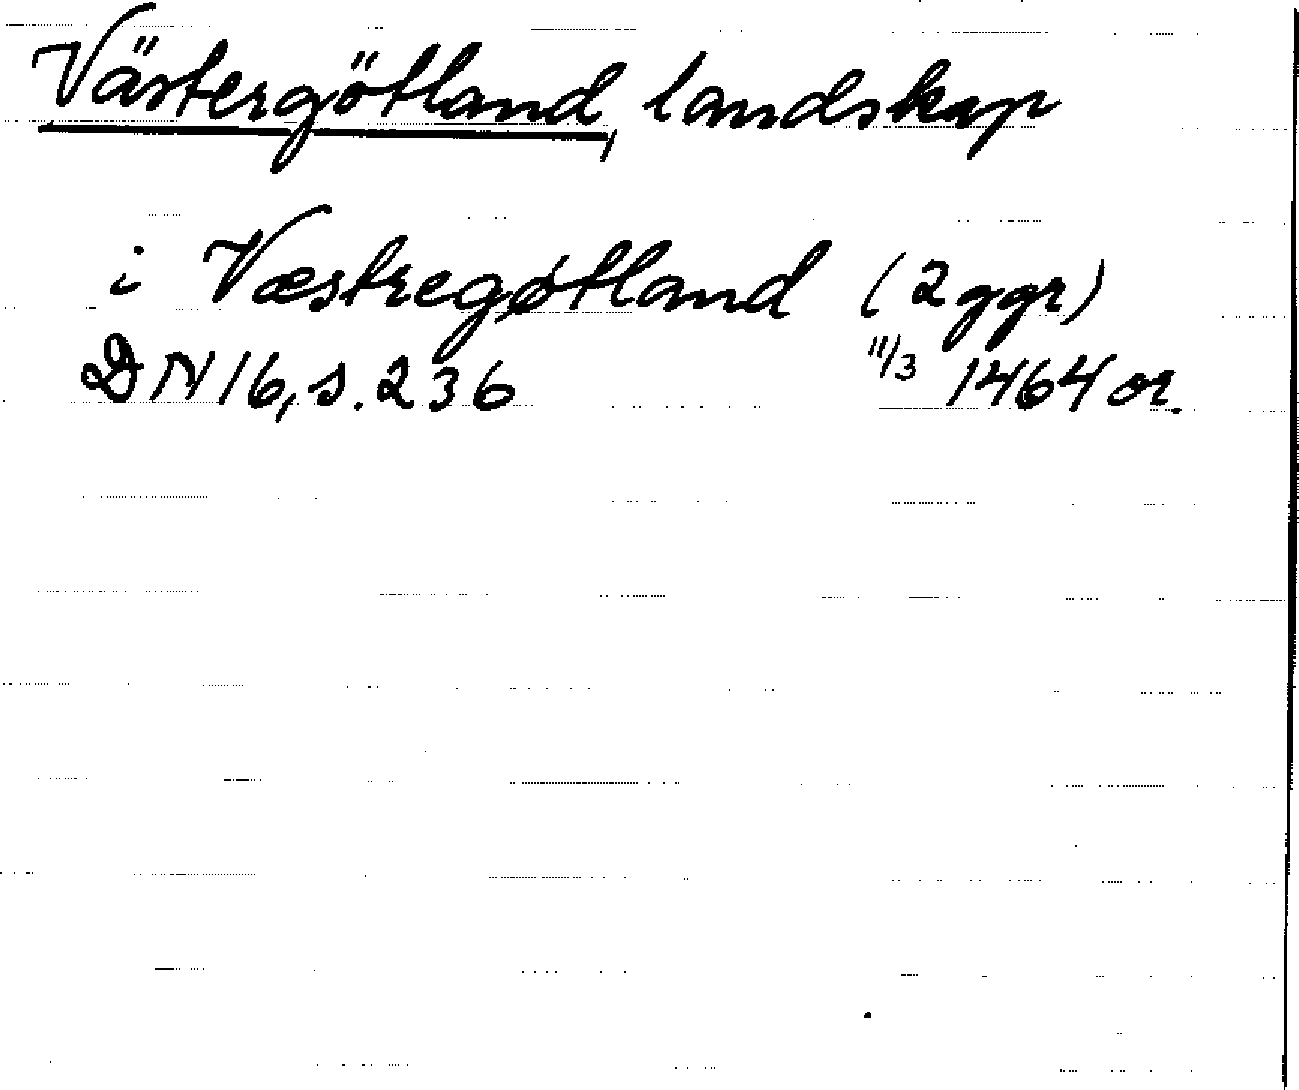 Västergötland, landskap
i Væstregøtland (2 ggr)
DN 16, s. 236 11/3 1464 or.